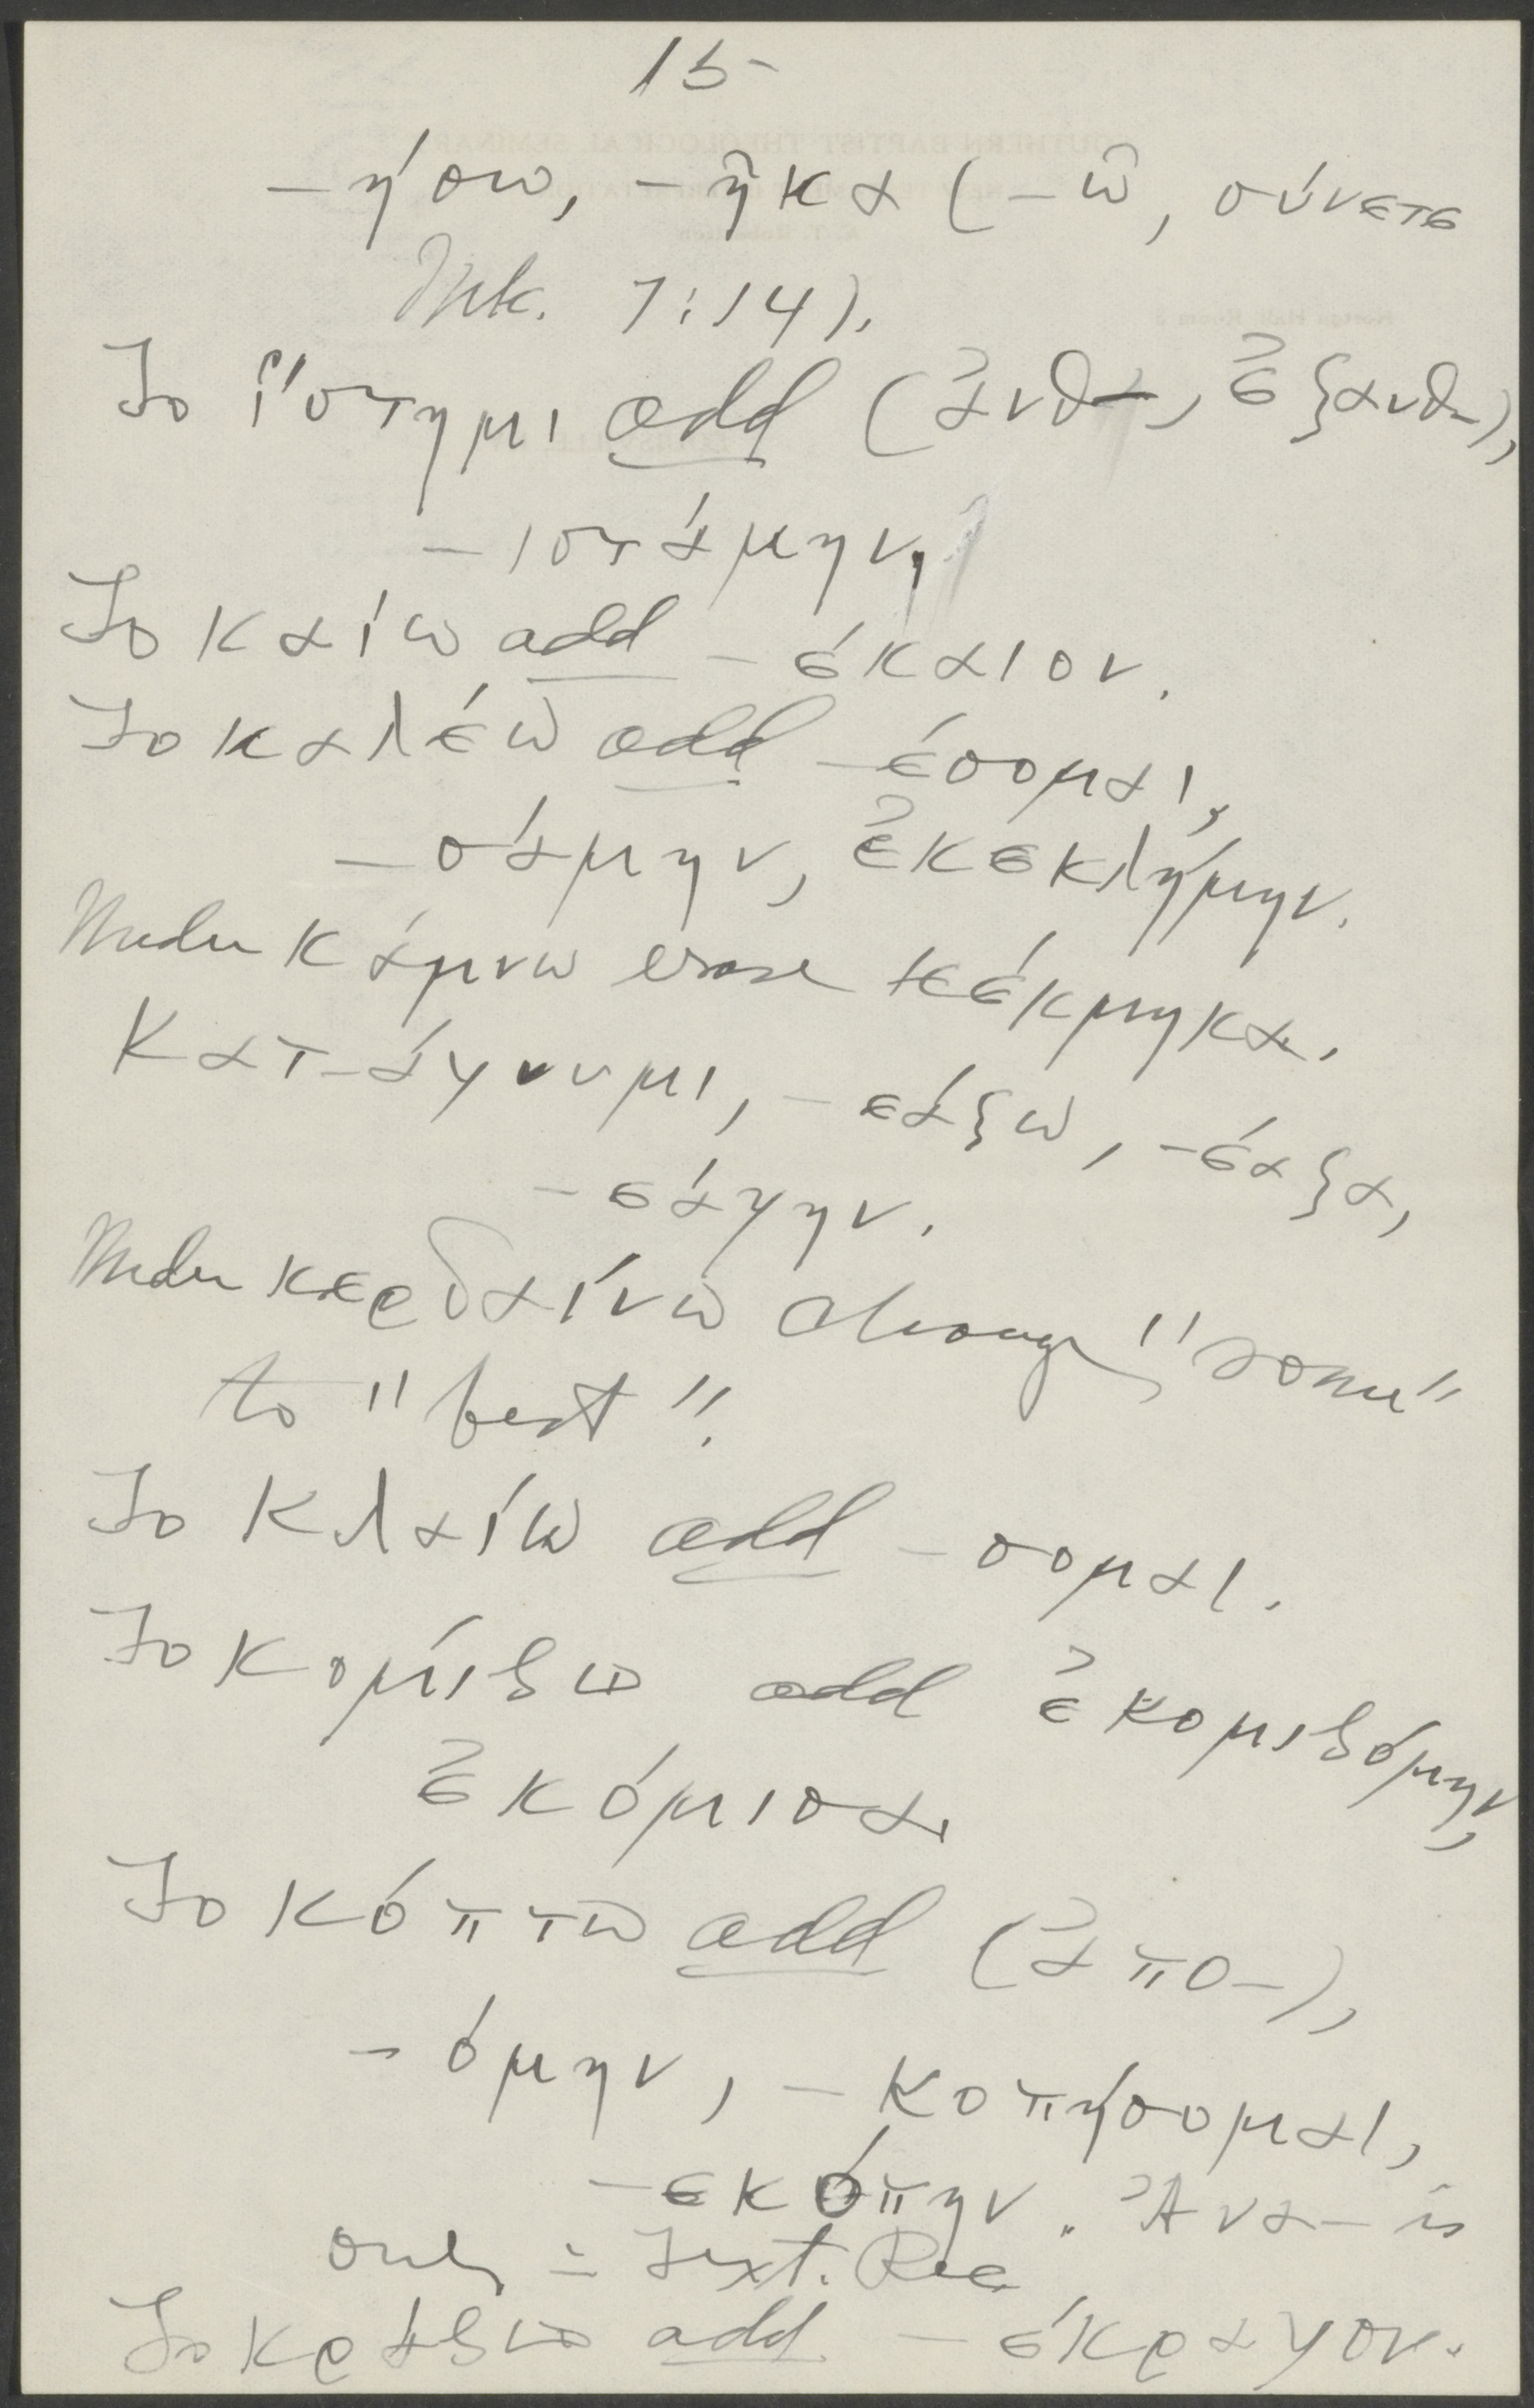 15-
-ήσω, -ῆκα (-ῶ, σύνετε
Mk. 7:14).
To ἵστημι add (ἀνθ-, ἐξανθ-),
-ιστάμην,
To καίω add -έκαιον.
To καλέω add -έσομαι,
-σάμην, ἐκεκλήμην.
Under κάμνω erase κέκμηκα.
Κατ-άγνυμι, -εάξω, -έαξα,
-εάγην.
Under κερδαίνω change "some"
to "best".
To κλαίω add -σομαι.
To κομίζω add ἐκομιζόμην,
ἐκόμισα.
To κόπτω add (ἀπο-),
-όμην, -κοπήσομαι,
-εκόπην. Ἀνα- is
only in Text. Rec.
To κράζω add -έκραγον.